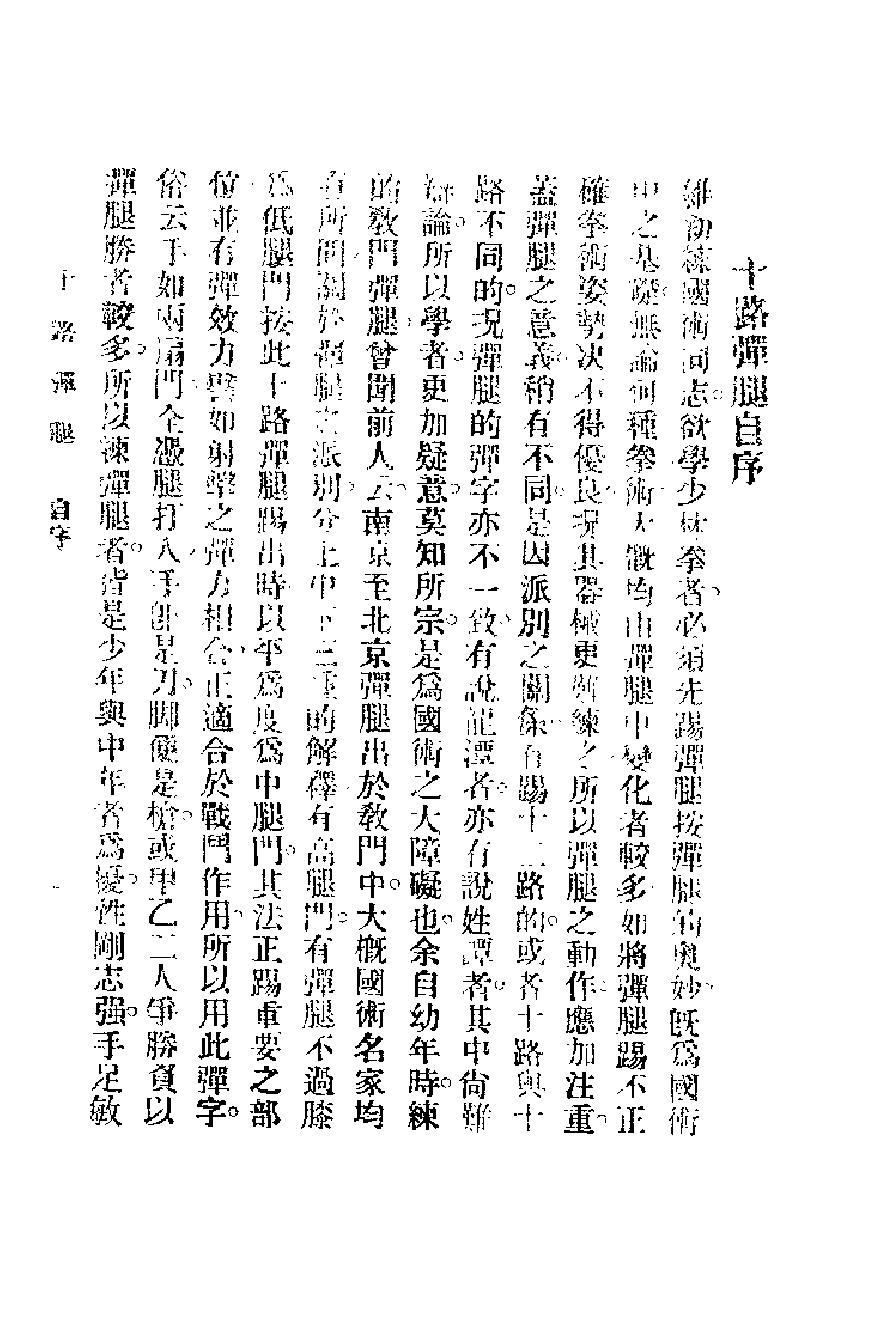 十路彈腿自序
雖初練國術同志。欲學少林拳者、必須先踢彈腿按彈腿的奧妙、旣爲國術
中之基礎、無論何種拳術大槪均由彈腿中變化者較多如將彈腿踢不正
確拳術姿勢决不得優良、况其器械更難練之所以彈腿之動作、應加注重。
蓋彈腿之意義稍有不同。是因派別之關係、有踢十二路的。或者十路與十
路不同的。况彈腿的彈字亦不一致、有說龍潭者。亦有說姓譚者。其中尙難
論。所以學者。更加疑意。莫知所宗。是爲國術之大障礙也。余自幼年時。練
的敎門彈腿、曾聞前人云、南京至北京彈腿出於敎門中。大槪國術名家均
有所聞關於彈腿之派別、分上中下三重的解釋有高腿門。有彈腿不過膝
爲低腿門按此十路彈腿踢出時以平爲度爲中腿門。其法正踢重要之部
位並有彈效力譬如射擊之彈力相合、正適合於戰鬥作用、所以用此彈字。
俗云手如兩扇門、全憑腿打人手卽是刀。脚便是槍。或甲乙二人爭勝負以
彈腿勝者較多。所以練彈腿者。皆是少年與中年者爲優。性剛志强。手足敏
十路彈腿　自序